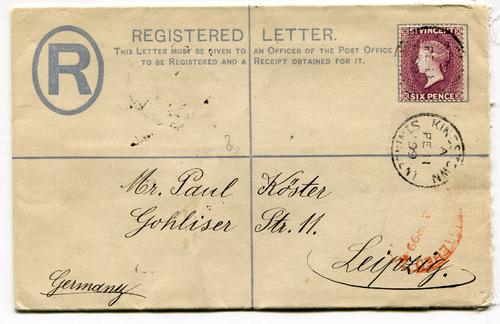 REGISTERED LETTER.
THIS LETTER MUST BE GIVEN TO AN OFFICER OF THE POST OFFICE
TO BE REGISTERED AND A RECEIPT OBTAINED FOR IT.
R
ST VINCENT
SIX PENCE
KINGSTOWN
A
FE 11
99
ST VINCENT
Mr. Paul Köster
Gohliser Str. 11.
Leipzig.
Germany